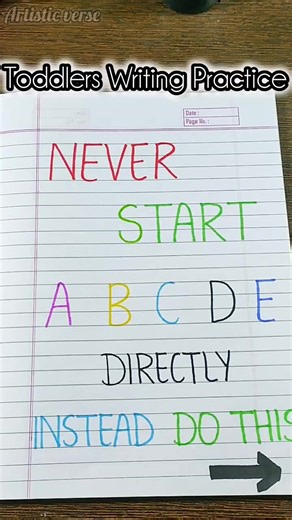 Artistic verse
Toddlers Writing Practice
Date :
Page No. :
NEVER
START
A B C D E
DIRECTLY
INSTEAD DO THIS